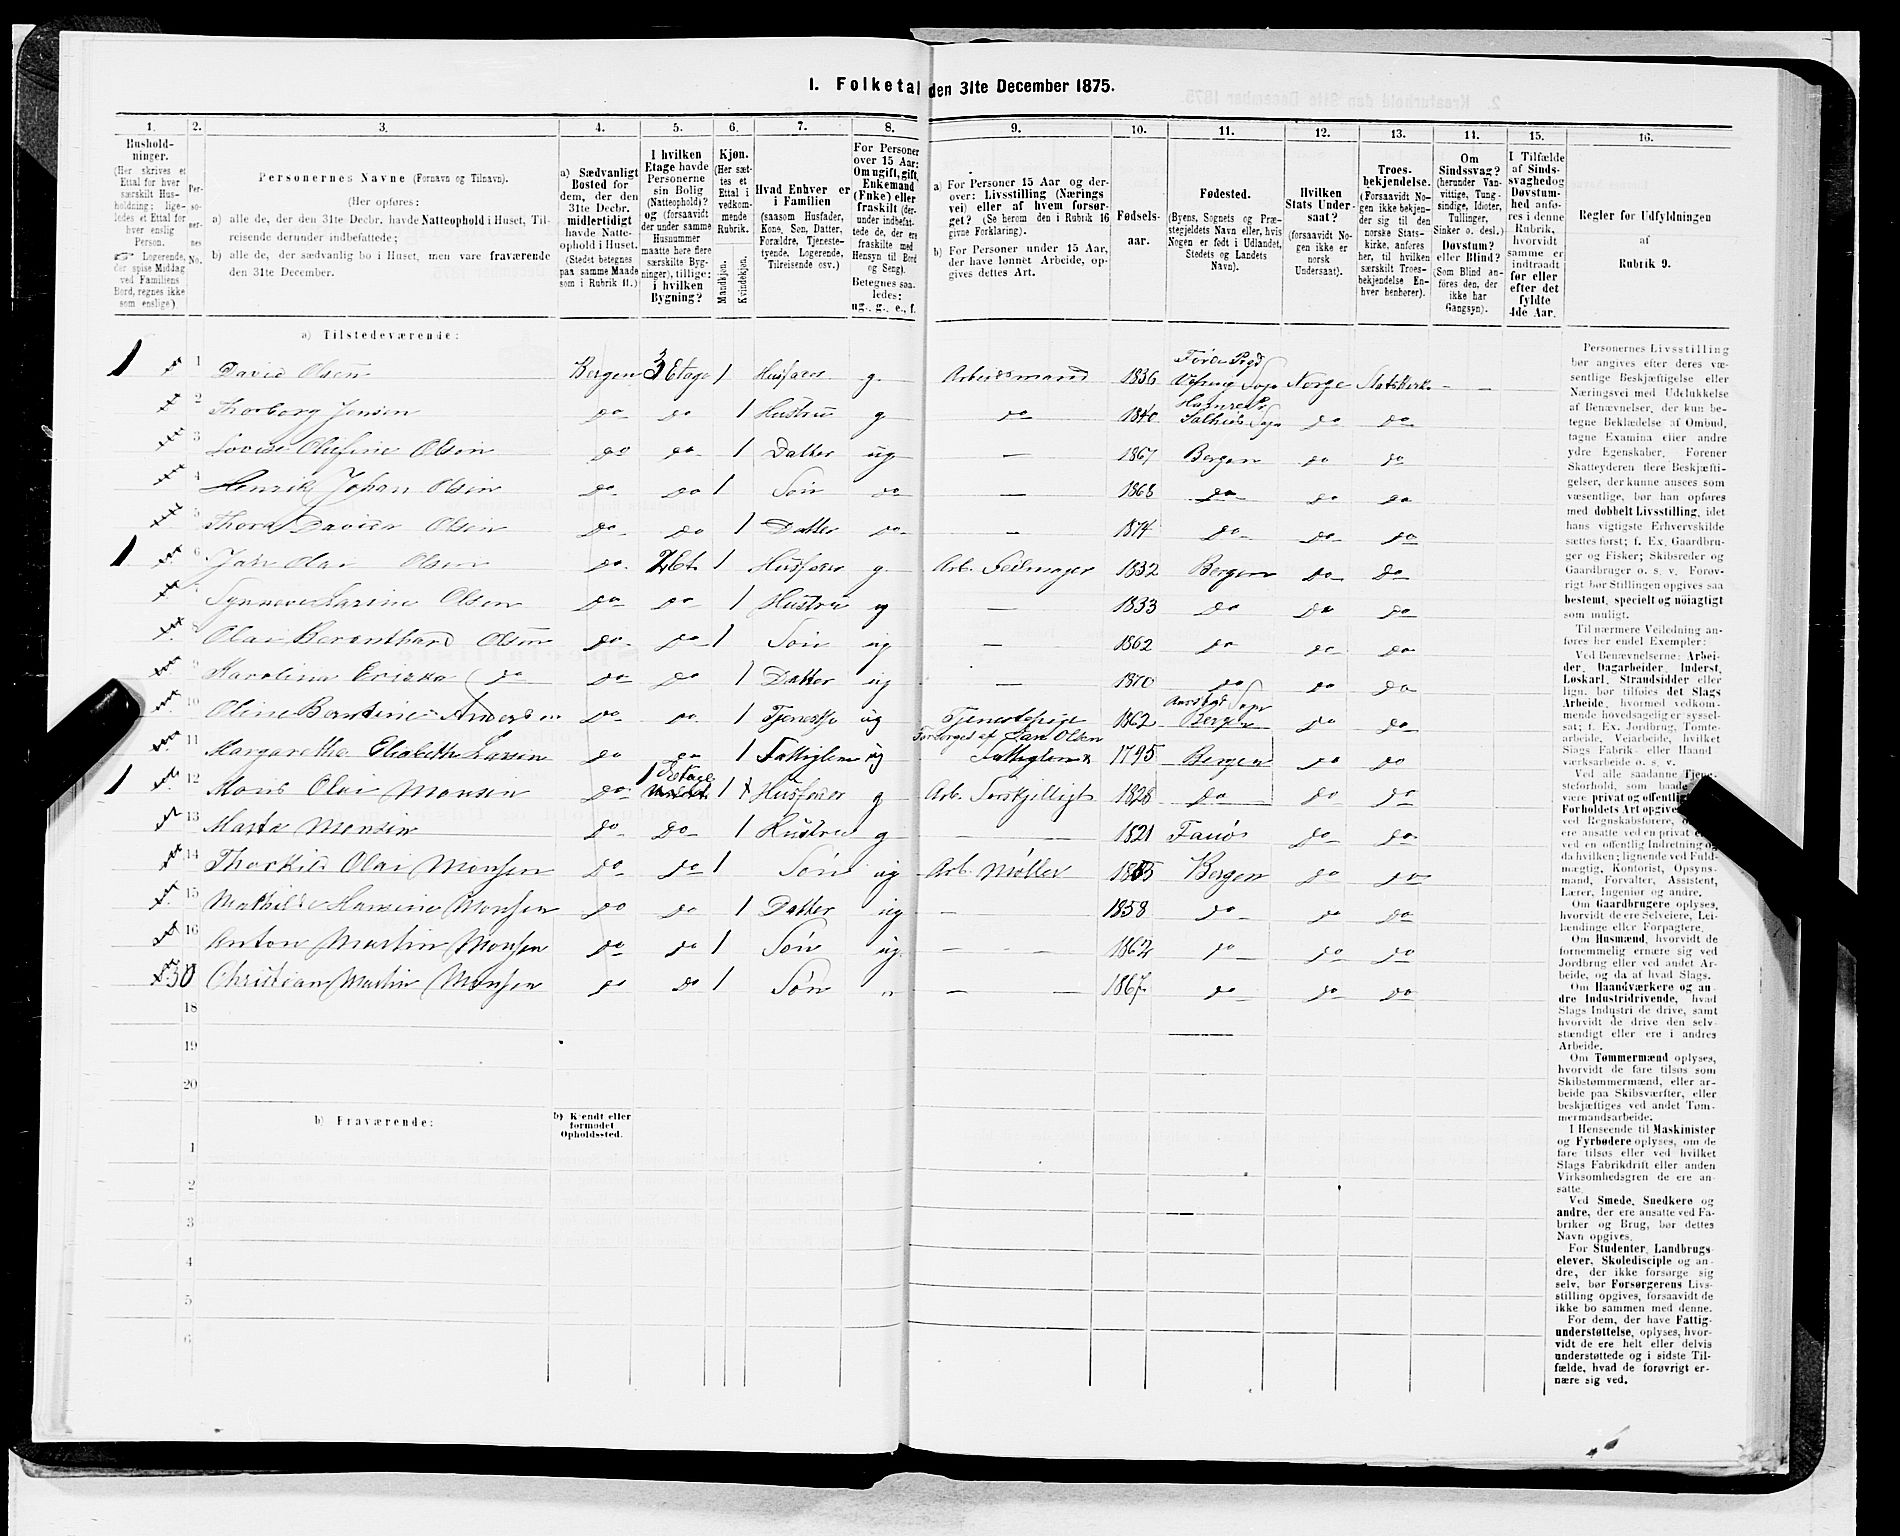 I. Folketal den 31te December 1875.
1. 2. 3. 4. 5. 6. 7. 8. 9. 10. 11. 12. 13. 14. 15. 16.
Husholdninger.
(Her skrives et Ettal for hver særskilt Husholdning; ligeledes et Ettal for hver enslig Person.
☞ Logerende, der spise Middag ved Familiens Bord, regnes ikke som enslige)
Personernes No.
Personernes Navne (Fornavn og Tilnavn).
(Her opføres:
a) alle de, der den 31te Decbr. havde Natteophold i Huset, Tilreisende derunder indbefattede;
b) alle de, der sædvanlig bo i Huset, men vare fraværende den 31te December.
a) Sædvanligt Bosted for dem, der den 31te Decbr. midlertidigt havde Natteophold i Huset. (Stedet betegnes paa samme Maade som i Rubrik 11.)
I hvilken Etage havde Personerne sin Bolig (Natteophold)? og (forsaavidt der under samme Husnummer maatte høre flere særskilte Bygninger), tillige: i hvilken Bygning?
Kjøn.
(Her sættes et Ettal i vedkommende Rubrik.
Mandkjøn.
Kvindekjøn.
Hvad Enhver er i Familien
(saasom Husfader, Kone, Søn, Datter, Forældre, Tjenestetyende, Logerende, Tilreisende osv.)
For Personer over 15 Aar: Om ugift, gift, Enkemand (Enke) eller fraskilt (derunder indbefattede de, der ere fraskilte med Hensyn til Bord og Seng). Betegnes saaledes: ug., g., e., f.
a) For Personer 15 Aar og derover: Livsstilling (Næringsvei) eller af hvem forsørget? (Se herom den i Rubrik 16 givne Forklaring).
b) For Personer under 15 Aar, der have lønnet Arbeide, opgives dettes Art.
Fødselsaar.
Fødested.
(Byens, Sognets og Præstegjeldets Navn eller, hvis Nogen er født i Udlandet, Stedets og Landets Navn).
Hvilken Stats Undersaat?
(forsaavidt Nogen ikke er norsk Undersaat).
Troesbekjendelse.
(Forsaavidt Nogen ikke bekjender sig til den norske Statskirke, anføres her, til hvilken særskilt Troesbekjendelse Enhver henhører).
Om Sindssvag? (herunder Vanvittige, Tungsindige, Idioter, Tullinger, Sinker o. desl.) Døvstum? eller Blind? (Som Blind anføres den, der ikke har Gangsyn).
I Tilfælde af Sindssvaghed og Døvstumhed anføres i denne Rubrik, hvorvidt samme er indtraadt før eller efter det fyldte 4de Aar.
Regler for Udfyldningen af Rubrik 9.
a) Tilstedeværende:
1 1 David Olsen Bergen 3 Etage 1 Husfader g. Arbeidsmand 1836 Førde Prgd Sogn Norge Statskirke
2 Thorborg Jensen do do 1 Hustru g do 1840 Sogn do do
3 Lovise Olufine Olsen do do 1 Datter ug — 1867 Bergen do do
4 Henrik Johan Olsen do do 1 Søn do — 1868 do do do
5 Thora Olsen do do 1 Datter do — 1874 do do do
1 6 Jan Olai Olsen do 2 Et. 1 Husfader g. Arb. 1832 Bergen do do
Synneve Larine Olsen do do 1 Hustru g — 1833 do do do
Olai Bernthard Olsen do do 1 Søn ug — 1862 do do do
9 Karolina Ericka do do do 1 Datter ug — 1870 do do do
10 Oline Bertine Andersen do do 1 ug Tjenestepige 1862 Sogn Bergen do do
11 Margaretha Elisabeth Larsen do do 1 Fattiglem ug Forsørget af Jan Olsen Fattiglem 1795 Bergen do do
1 12 Mons Olai Monsen do 1 Etage 1 Husfader g Arb. Forskjelligt 1828 do do do
13 Marta Monsen do do 1 Hustru g — 1821 Fanøs do do
14 Thorkild Olai Monsen do do 1 Søn ug Arb. Møller 1855 Bergen do do
15 Mathilde Hansine Monsen do do 1 Datter ug — 1858 do do do
16 Anton Martin Monsen do do 1 Søn ug. — 1862 do do do
30 Christian Martin Monsen do do 1 Søn " — 1867 do do do
18
19
20
b) Fraværende:
b) Kjendt eller formodet Opholdssted.
1
2
3
4
5
6
Personernes Livsstilling
bør angives efter deres væ-
sentlige Beskjæftigelse eller
Næringsvei med Udelukkelse
af Benævnelser, der kun be-
tegne Beklædelse af Ombud,
tagne Examina eller andre
ydre Egenskaber. Forener
Skatteyderen flere Beskjæfti-
gelser, der kunne ansees som
væsentlige, bør han opføres
med dobbelt Livsstilling, idet
hans vigtigste Erhvervskilde
sættes først; f. Ex. Gaardbru-
ger og Fisker; Skibsreder og
Gaardbruger o. s. v. Forøv-
rigt bør Stillingen opgives saa
bestemt, specielt og nøiagtigt
som muligt.
Til nærmere Veiledning an-
føres her endel Exempler:
Ved Benævnelserne: Arbei-
der, Dagarbeider, Inderst,
Løskarl, Strandsidder eller
lign. bør tilføies det Slags
Arbeide, hvormed vedkom-
mende hovedsagelig er syssel-
sat; f. Ex. Jordbrug, Tomte-
arbeide, Veiarbeide, hvilket
Slags Fabrik- eller Haand
værksarbeide o. s. v.
Ved alle saadanne Tjene-
steforhold, som baade
være privat og offentlig
Forholdets Art opgives
ved Regnskabsførere,
ere ansatte ved en privat
ved en offentlig Indretning og
da hvilken; lignende ved Fuld-
mægtig, Kontorist, Opsyns-
mand, Forvalter, Assistent,
Lærer, Ingeniør og andre.
Om Gaardbrugere oplyses,
hvorvidt de ere Selveiere, Lei-
lændinge eller Forpagtere.
Om Husmænd, hvorvidt de
fornemmelig ernære sig ved
Jordbrug eller ved andet Ar-
beide, og da af hvad Slags.
Om Haandværkere og an-
dre Industridrivende, hvad
Slags Industri de drive, samt
hvorvidt de drive den selv-
stændigt eller ere i andres
Arbeide.
Om Tømmermænd oplyses,
hvorvidt de fare tilsøs som
Skibstømmermænd, eller ar-
beide paa Skibsværfter, eller
beskjæftiges ved andet Tøm-
mermandsarbeide.
I Henseende til Maskinister
og Fyrbødere oplyses, om de
fare tilsøs eller ved hvilket
Slags Fabrikdrift eller anden
Virksomhedsgren de ere an-
satte.
Ved Smede, Snedkere og
andre, der ere ansatte ved Fa-
briker og Brug, bør dettes
Navn opgives.
For Studenter, Landbrugs-
elever, Skoledisciple og an-
dre, der ikke forsørge sig
selv, bør Forsørgerens Livs-
stilling opgives, forsaavidt de
ikke bo sammen med denne.
For dem, der have Fattig-
understøttelse, oplyses, hvor-
vidt de ere helt eller delvis
understøttede og i sidste Til-
fælde, hvad de forøvrigt er-
nære sig ved.